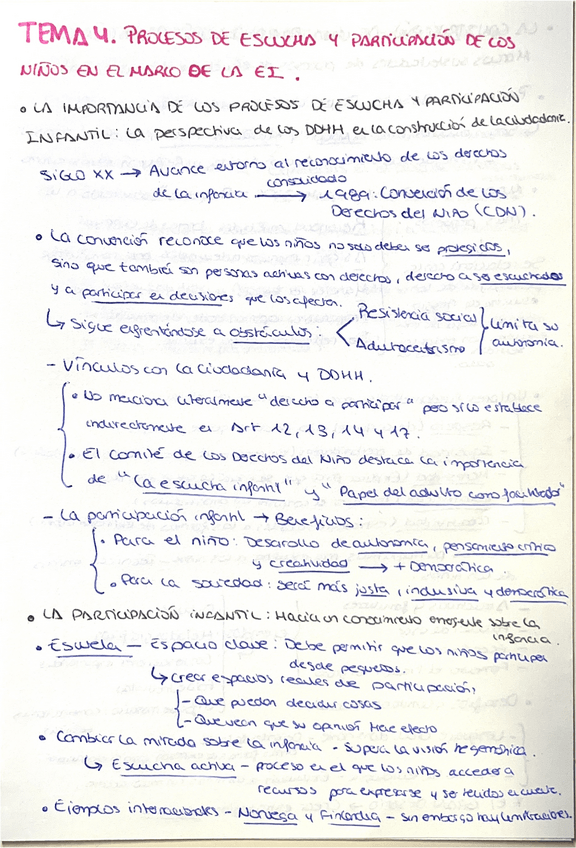 TEMA 4. PROCESOS DE ESCUCHA Y PARTICIPACIÓN DE LOS
NIÑOS EN EL MARCO DE LA EI.
• LA IMPORTANCIA DE LOS PROCESOS DE ESCUCHA Y PARTICIPACIÓN
INFANTIL: La perspectiva de los DDHH en la construcción de la ciudadanía.
SIGLO XX → Avance entorno al reconocimiento de los derechos
de la infancia consolidado → 1989: Convención de los
Derechos del Niño (CDN).
• La convención reconoce que los niños no solo deben ser protegidos,
sino que también son personas activas con derechos, derecho a ser escuchados
y a participar en decisiones que les afecten.
↳ Sigue enfrentándose a obstáculos: Resistencia social
Adultocentrismo
Limita su
autonomía.
- Vínculos con la ciudadanía y DDHH.
• No menciona literalmente "derecho a participar" pero sí lo establece
indirectamente en Art 12, 13, 14 y 17.
• El comité de los Derechos del Niño destaca la importancia
de "La escucha infantil" y "Papel del adulto como facilitador"
- La participación infantil → Beneficios:
• Para el niño: Desarollo de autonomía, pensamiento crítico
y creatividad → + Democrática
• Para la sociedad: Será más justa, inclusiva y democrática
• LA PARTICIPACIÓN INFANTIL: Hacia un conocimiento emergente sobre la
infancia.
• Escuela - Espacio clave: Debe permitir que los niños participen
desde pequeños.
↳ Crear espacios reales de participación,
- Que puedan decidir cosas
- Que vean que su opinión Hace efecto
• Cambiar la mirada sobre la infancia - Supera la visión hegemónica.
↳ Escucha activa - proceso en el que los niños acceden a
recursos para expresarse y ser tenidos en cuenta.
• Ejemplos internacionales - Noruega y Finlandia - Sin embargo hay limitaciones.